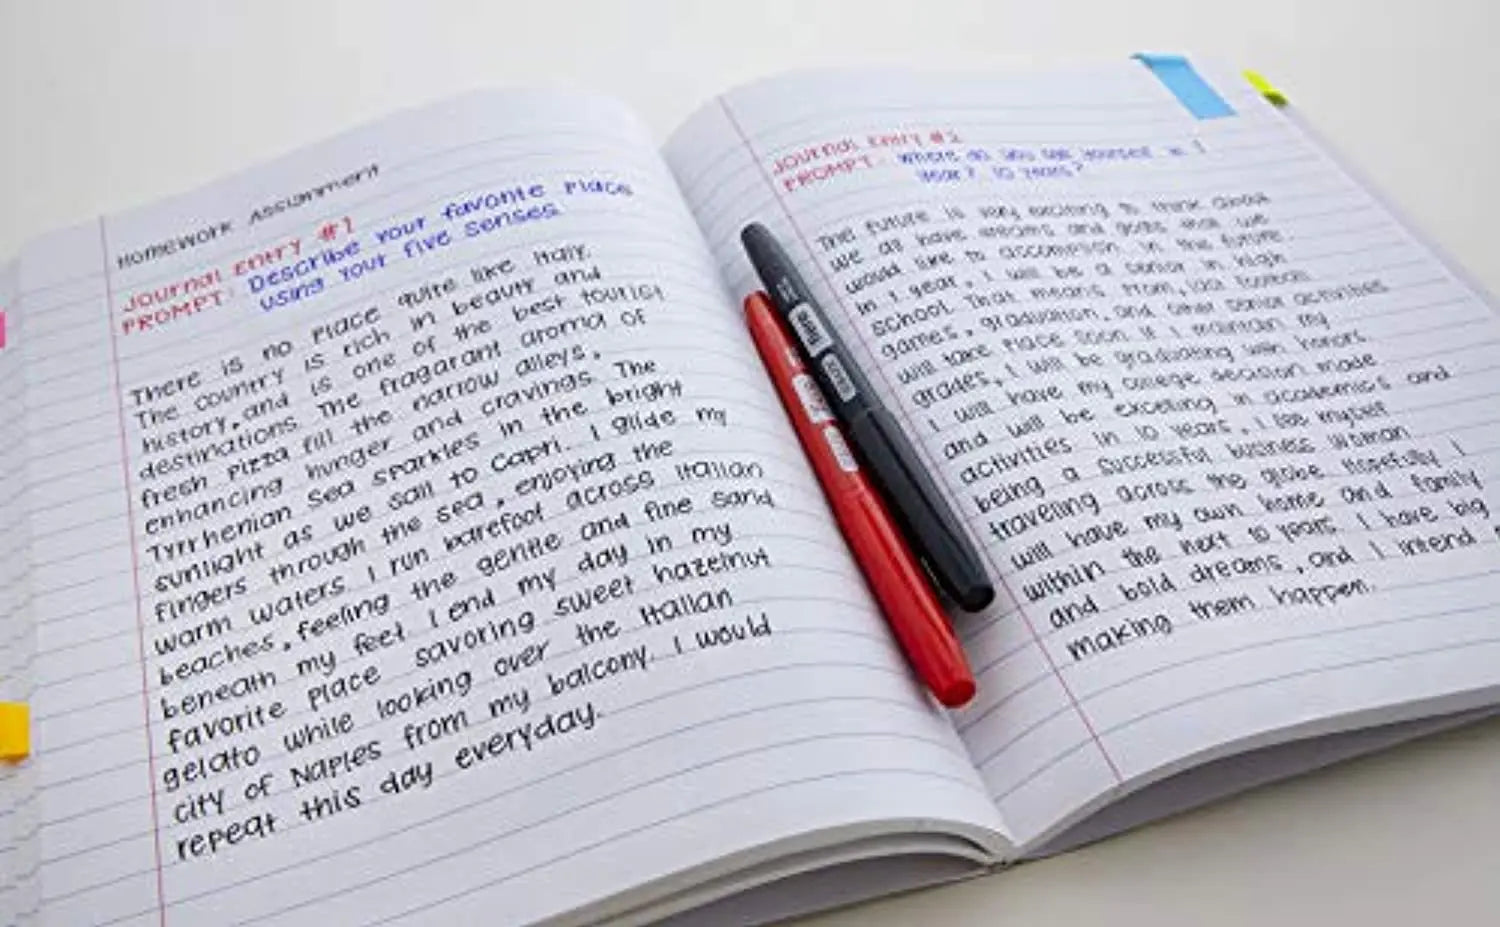 Homework Assignment
Journal Entry #1
PROMPT: Describe your favorite place
using your five senses.
There is no place quite like Italy.
The country is rich in beauty and
history, and is one of the best tourist
destinations. The fragarant aroma of
fresh pizza fill the narrow alleys,
enhancing hunger and cravings. The
Tyrrhenian Sea sparkles in the bright
sunlight as we sail to Capri. I glide my
fingers through the sea, enjoying the
warm waters. I run barefoot across Italian
beaches, feeling the gentle and fine sand
beneath my feet. I end my day in my
favorite place savoring sweet hazelnut
gelato while looking over the Italian
city of Naples from my balcony. I would
repeat this day everyday.
Journal Entry #2
PROMPT: Where do you see yourself in 1
year? 10 years?
The future is very exciting to think about
we all have dreams and goals that we
would like to accomplish in the future.
In 1 year, I will be a senior in high
school. That means prom, last football
games, graduation, and other senior activities
will take place soon. If I maintain my
grades, I will be graduating with honors.
I will have my college decision made
and will be excelling in academics and
activities. In 10 years, I see myself
being a successful business woman
traveling across the globe. Hopefully I
will have my own home and family
within the next 10 years. I have big
and bold dreams, and I intend
making them happen.